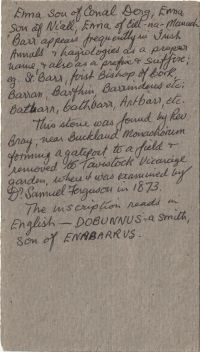 Enna son of Conal Derg, Enna
son of Niall, Enna of Cill-na-Manach
Barr appears frequently in Irish
Annals & hagiologies as a proper
name & also as a prefix & suffix;
eg. St. Barr, first Bishop of Cork,
Barran, Barrfhin, Barrindeus etc;
Bathbarr, Cathbarr, Antbarr, etc.
This stone was found by Rev
Bray, near Buckland Monachorum
forming a gatepost to a field &
removed to Tavistock Vicarage
garden, where it was examined by
Dr. Samuel Ferguson in 1873.
The inscription reads in
English — DOBUNNUS - a smith,
son of ENABARRUS.